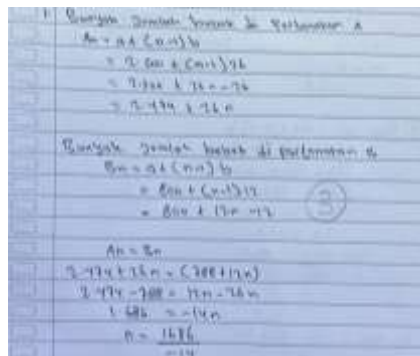 1. Banyak Jumlah bebek di Perternakan A
An = a + (n-1) b
= 2.500 + (n-1) 26
= 2.500 + 26n - 26
= 2.474 + 26n
Banyak Jumlah bebek di perternakan B
Bn = a + (n-1) b
= 800 + (n-1) 12
= 800 + 12n - 12
3
An = Bn
2.474 + 26n = (788 + 12n)
2.474 - 788 = 12n - 26n
1.686 = -14n
n = 1686
-14